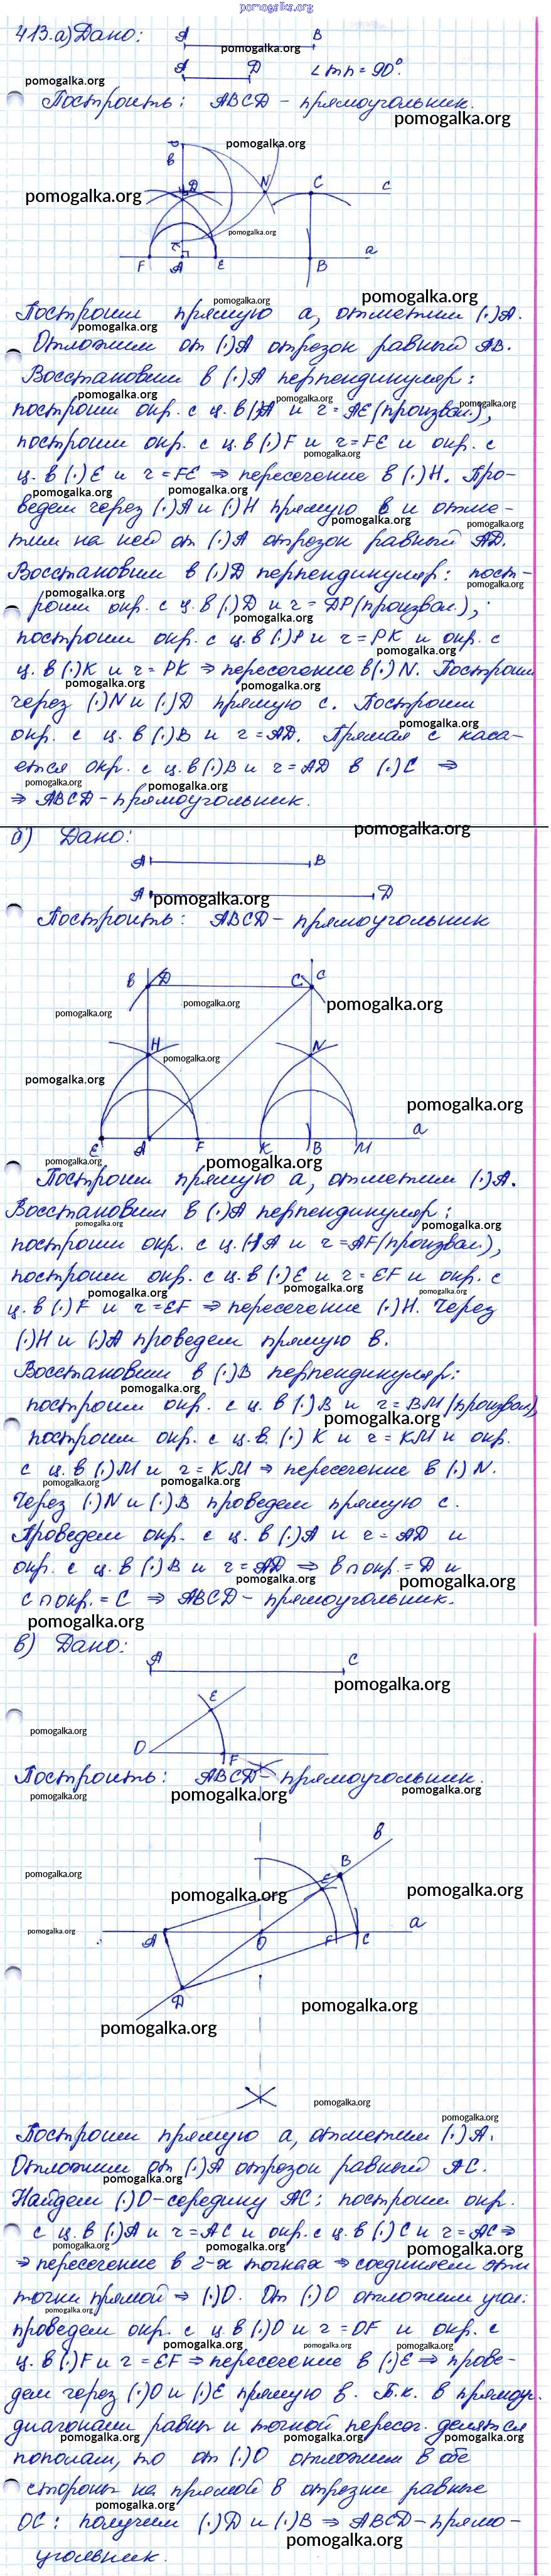 pomogalka.org
413. а) Дано: А В
А D ∠mn = 90°.
Построить: ABCD - прямоугольник.
P
в
D N C c
H
K
F A E B a
Построим прямую а, отметим (.)А.
Отложим от (.)А отрезок равный АВ.
Восстановим в (.)А перпендикуляр:
построим окр. с ц. в (.)А и r = AE (произвол.),
построим окр. с ц. в (.)F и r = FE и окр. с
ц. в (.)E и r = FE ⇒ пересечение в (.)H. Про-
ведем через (.)А и (.)H прямую в и отме-
тим на ней от (.)А отрезок равный AD.
Восстановим в (.)D перпендикуляр: пост-
роим окр. с ц. в (.)D и r = DP (произвол.),
построим окр. с ц. в (.)P и r = PK и окр. с
ц. в (.)K и r = PK ⇒ пересечение в (.)N. Построим
через (.)N и (.)D прямую с. Построим
окр. с ц. в (.)B и r = AD. Прямая с каса-
ется окр. с ц. в (.)B и r = AD в (.)C ⇒
⇒ ABCD - прямоугольник.
б) Дано:
А В
А D
Построить: ABCD - прямоугольник
в D C c
H N
E A F K B M a
Построим прямую а, отметим (.)А.
Восстановим в (.)А перпендикуляр:
построим окр. с ц. (.)А и r = AF (произвол.),
построим окр. с ц. в (.)E и r = EF и окр. с
ц. в (.)F и r = EF ⇒ пересечение (.)H. Через
(.)H и (.)А проведем прямую в.
Восстановим в (.)В перпендикуляр:
построим окр. с ц. в (.)В и r = BM (произвол.),
построим окр. с ц. в (.) K и r = KM и окр.
с ц. в (.)M и r = KM ⇒ пересечение в (.) N.
Через (.)N и (.)B проведем прямую с.
Проведем окр. с ц. в (.)А и r = AD и
окр. с ц. в (.)B и r = AD ⇒ в ∩ окр. = D и
с ∩ окр. = C ⇒ ABCD - прямоугольник.
в) Дано:
А С
E
O F
Построить: ABCD - прямоугольник.
в
B
E
A O F C a
D
Построим прямую а, отметим (.)А.
Отложим от (.)А отрезок равный АС.
Найдем (.)О - середину АС: построим окр.
с ц. в (.)А и r = AC и окр. с ц. в (.)С и r = AC ⇒
⇒ пересечение в 2-х точках ⇒ соединяем эти
точки прямой ⇒ (.)О. От (.)О отложим угол:
проведем окр. с ц. в (.)О и r = OF и окр. с
ц. в (.)F и r = EF ⇒ пересечение в (.)E ⇒ прове-
дем через (.)О и (.)E прямую в. Т.к. в прямоуг.
диагонали равны и точкой пересеч. делятся
пополам, то от (.)О отложим в обе
стороны на прямой в отрезки равные
ОС: получим (.)D и (.)B ⇒ ABCD - прямо-
угольник.